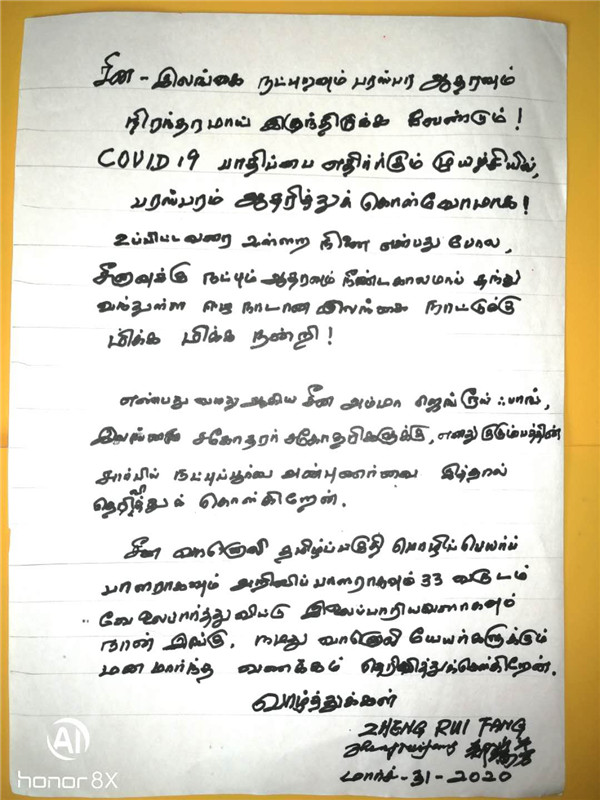 சீன - இலங்கை நட்புறவும் பரஸ்பர ஆதரவும்
நிரந்தரமாய் இருந்திருக்க வேண்டும்!
COVID 19 பாதிப்பை எதிர்க்கும் முயற்சியில்,
பரஸ்பரம் ஆதரித்துக் கொள்வோமாக!
உப்பிட்டவரை உள்ளளவு நினை என்பது போல,
சீனாவுக்கு நட்பும் ஆதரவும் நீண்டகாலமாய் தந்து
வந்துள்ள நாடான இலங்கை நாட்டுக்கு
மிக்க மிக்க நன்றி!
எண்பது வயது ஆகிய சீன அம்மா
இலங்கை சகோதரர் சகோதரிகளுக்கு, எனது குடும்பத்தின்
சார்பில் நட்புப்பூர்வ அன்புணர்வை இத்தால்
தெரிவித்துக் கொள்கிறேன்.
சீன வானொலி தமிழ்ப்பகுதி மொழிபெயர்ப்
பாளராகவும் அறிவிப்பாளராகவும் 33 வருடம்
வேலைபார்த்துவிட்டு இளைப்பாறியவளாகவும்
நான் இங்கு, நமது வானொலி நேயர்களுக்கும்
மனமார்ந்த வணக்கம் தெரிவித்துக்கொள்கிறேன்.
வாழ்த்துக்கள்
ZHENG RUI FANG
மார்ச் - 31 - 2020
AI
honor 8X